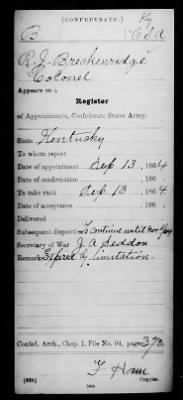 (CONFEDERATE.)
B. Ky CSA
R. J. Breckenridge
Colonel
Appears on a
Register
of Appointments, Confederate States Army.
State Kentucky
To whom report
Date of appointment Sep 13, 1864
Date of confirmation , 186
To take rank Sep 13, 1864
Date of acceptance , 186
Delivered
Subsequent disposition To continue until
Secretary of War J. A. Seddon
Remarks Expired by limitation.
Confed. Arch., Chap. 1, File No. 94, page 370
F. Ham
(638) Copyist.